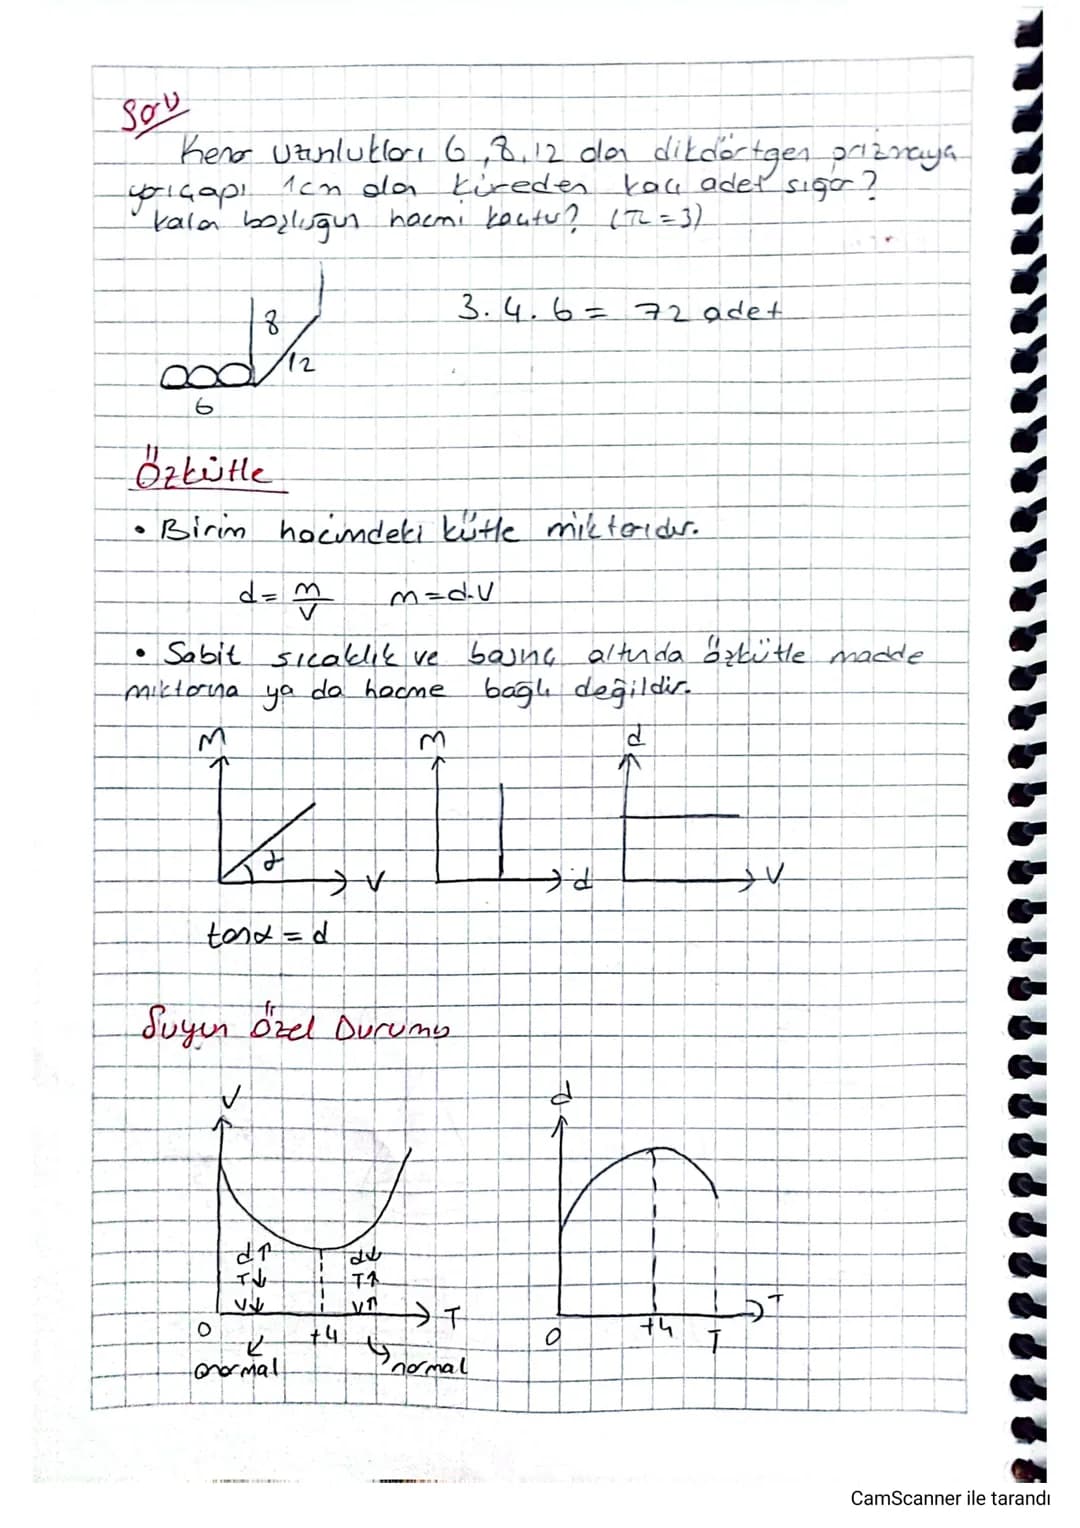 Soru
Kenar uzunlukları 6, 8, 12 olan dikdörtgen prizmaya
yarıçapı 1cm olan küreden kaç adet sığar?
kalan boşluğun hacmi kaçtır? (π = 3)
8
12
6
3.4.6 = 72 adet
Özkütle
• Birim hacimdeki kütle miktarıdır.
d = m/V m = d.V
• Sabit sıcaklık ve basınç altında özkütle madde
miktarına ya da hacme bağlı değildir.
M M d
α
V d V
tanα = d
Suyun Özel Durumu
V d
d↑ d↓
T↓ T↑
V↓ V↑
T T
0 +4 0 +4 T
anormal normal
CamScanner ile tarandı